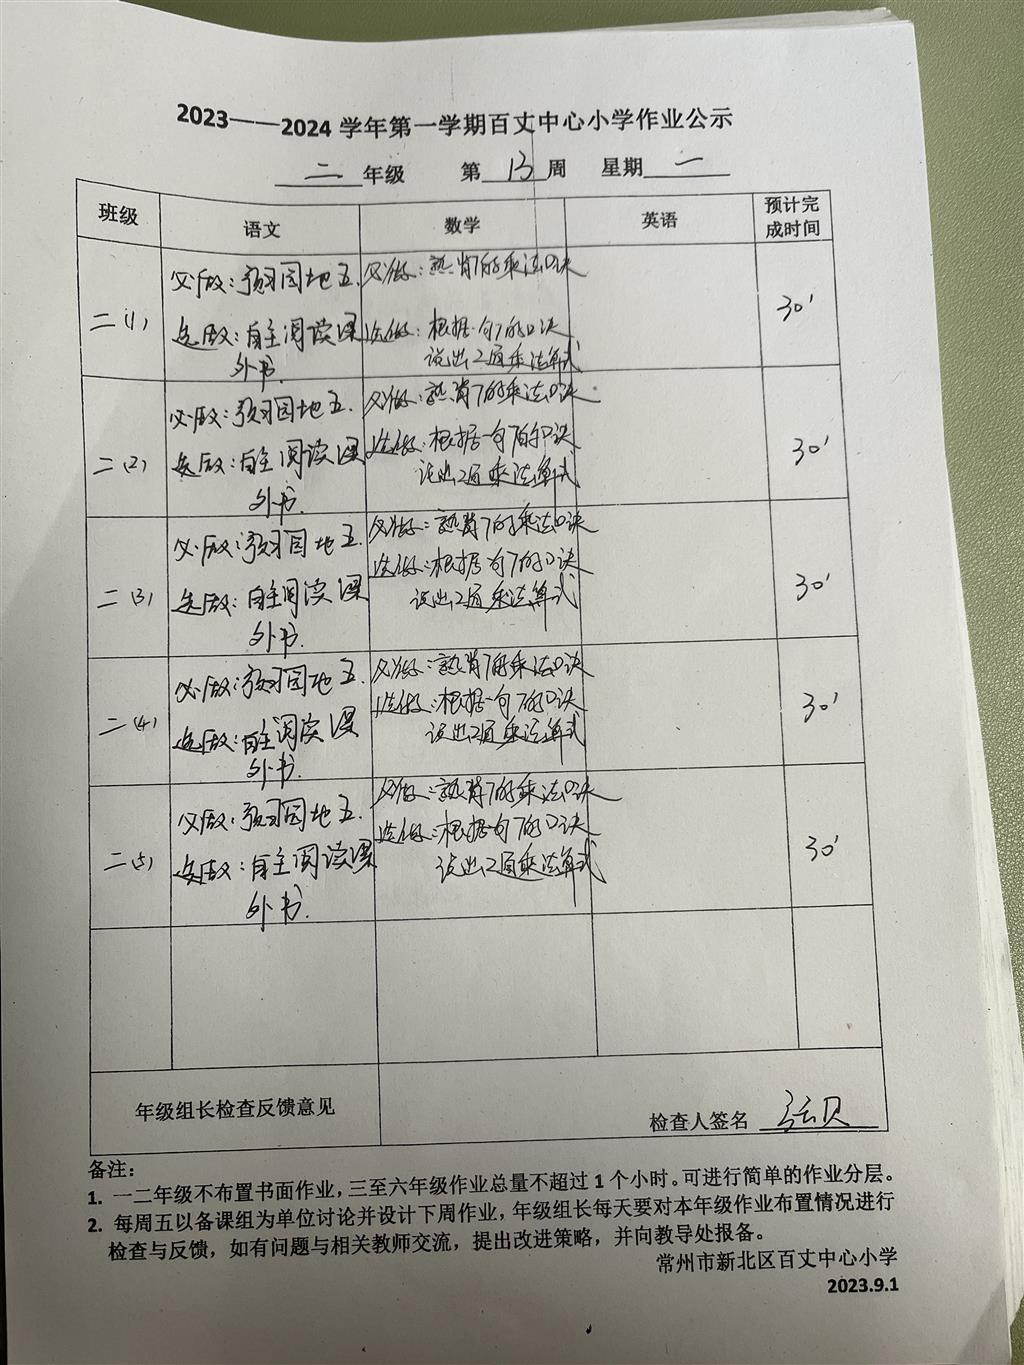 2023——2024 学年第一学期百丈中心小学作业公示
二 年级 第 13 周 星期 一
班级 语文 数学 英语 预计完成时间
二(1)
必做：预习园地五.
选做：自主阅读课
外书.
必做：熟背7的乘法口诀
选做：根据一句7的口诀
说出2道乘法算式
30'
二(2)
必做：预习园地五.
选做：自主阅读课
外书.
必做：熟背7的乘法口诀
选做：根据一句7的口诀
说出2道乘法算式
30'
二(3)
必做：预习园地五.
选做：自主阅读课
外书.
必做：熟背7的乘法口诀
选做：根据一句7的口诀
说出2道乘法算式
30'
二(4)
必做：预习园地五.
选做：自主阅读课
外书.
必做：熟背7的乘法口诀
选做：根据一句7的口诀
说出2道乘法算式
30'
二(5)
必做：预习园地五.
选做：自主阅读课
外书.
必做：熟背7的乘法口诀
选做：根据一句7的口诀
说出2道乘法算式
30'
年级组长检查反馈意见
检查人签名
备注：
1. 一二年级不布置书面作业，三至六年级作业总量不超过 1 个小时。可进行简单的作业分层。
2. 每周五以备课组为单位讨论并设计下周作业，年级组长每天要对本年级作业布置情况进行
检查与反馈，如有问题与相关教师交流，提出改进策略，并向教导处报备。
常州市新北区百丈中心小学
2023.9.1